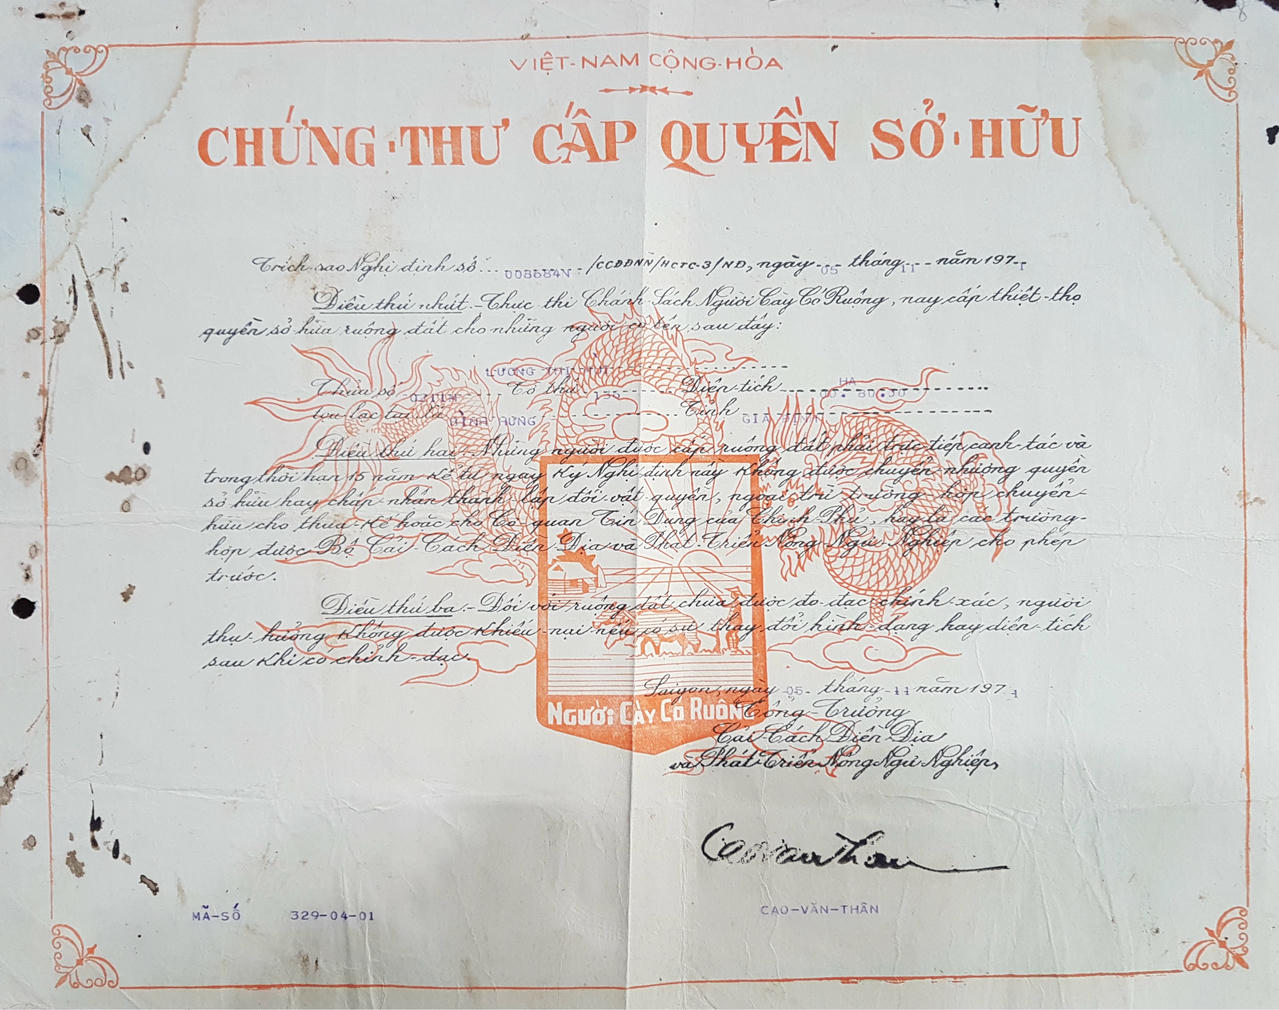 VIỆT-NAM CỘNG-HÒA
CHỨNG-THƯ CẤP QUYỀN SỞ-HỮU
Trích sao Nghị định số 008684N /CCĐĐNN/HCTC-3/NĐ, ngày 05 tháng 11 năm 1971
Điều thứ nhứt.- Thực thi Chánh Sách Người Cày Có Ruộng, nay cấp thiết-thọ
quyền sở hữu ruộng đất cho những người có tên sau đây:
LƯƠNG THỊ
Thửa số Tờ thứ 155 Diện tích HA 00.80.50
tọa lạc tại xã BÌNH HƯNG Tỉnh GIA ĐỊNH
Điều thứ hai.- Những người được cấp ruộng đất phải trực tiếp canh-tác và
trong thời hạn 15 năm kể từ ngày ký Nghị định này không được chuyển nhượng quyền
sở hữu hay chấp-nhận thành lập đối vật quyền, ngoại trừ trường hợp chuyển
hữu cho thừa-kế hoặc cho Cơ quan Tín Dụng của Chánh Phủ, hay là các trường-
hợp được Bộ Cải-Cách Điền Địa và Phát Triển Nông Ngư Nghiệp cho phép
trước.
Điều thứ ba.- Đối với ruộng đất chưa được đo đạc chính xác, người
thụ hưởng không được khiếu nại nếu có sự thay đổi hình-dạng hay diện tích
sau khi có chỉnh-đạc.
Saigon, ngày 05 tháng 11 năm 1971
Tổng-Trưởng
Cải-Cách Điền Địa
và Phát-Triển Nông Ngư Nghiệp,
NGƯỜI CÀY CÓ RUỘNG
Caovanthan
MÃ-SỐ 329-04-01
CAO-VĂN-THÂN